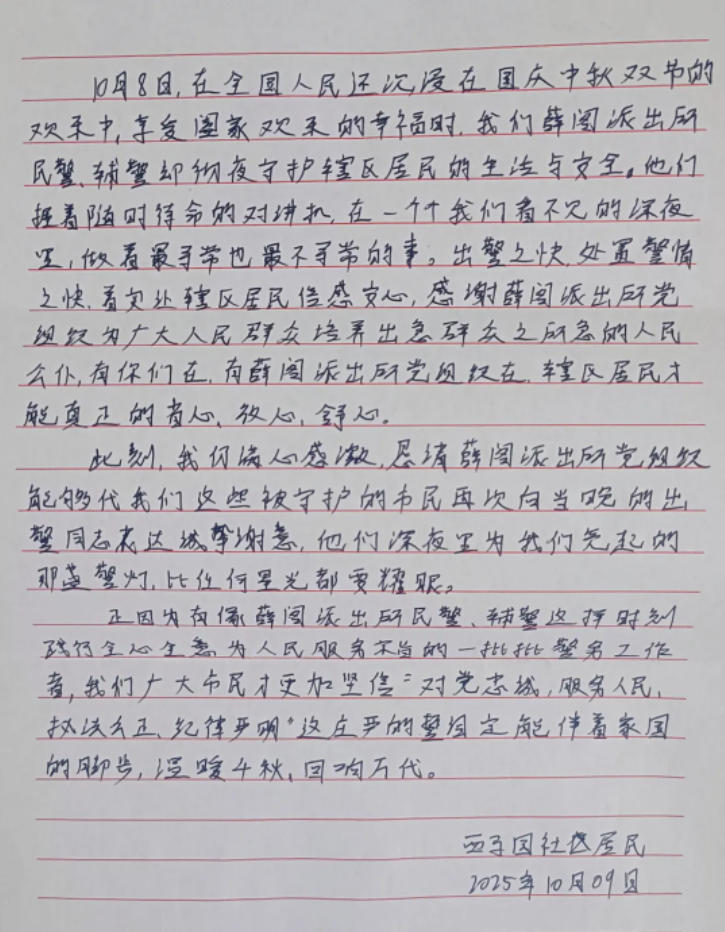 10月8日,在全国人民还沉浸在国庆中秋双节的
欢乐中,享受阖家欢乐的幸福时,我们薛阁派出所
民警、辅警却彻夜守护辖区居民的生活与安全。他们
握着随时待命的对讲机,在一个个我们看不见的深夜
里,做着最寻常也最不寻常的事。出警之快,处置警情
之快,着实让辖区居民倍感安心,感谢薛阁派出所党
组织为广大人民群众培养出急群众之所急的人民
公仆,有你们在,有薛阁派出所党组织在,辖区居民才
能真正的省心、放心、舒心。
此刻,我们满心感激,恳请薛阁派出所党组织
能够代我们这些被守护的市民再次向当晚的出
警同志表达诚挚谢意,他们深夜里为我们亮起的
那盏警灯,比任何星光都要耀眼。
正因为有像薛阁派出所民警、辅警这样时刻
践行全心全意为人民服务宗旨的一批批警务工作
者,我们广大市民才更加坚信“对党忠诚,服务人民,
执法公正、纪律严明”这庄严的警训定能伴着家国
的脚步,温暖千秋,回响万代。
西子国社区居民
2025年10月09日